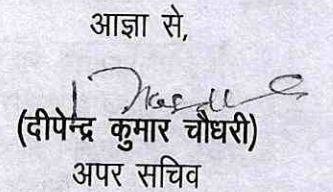 आज्ञा से,
(दीपेन्द्र कुमार चौधरी)
अपर सचिव